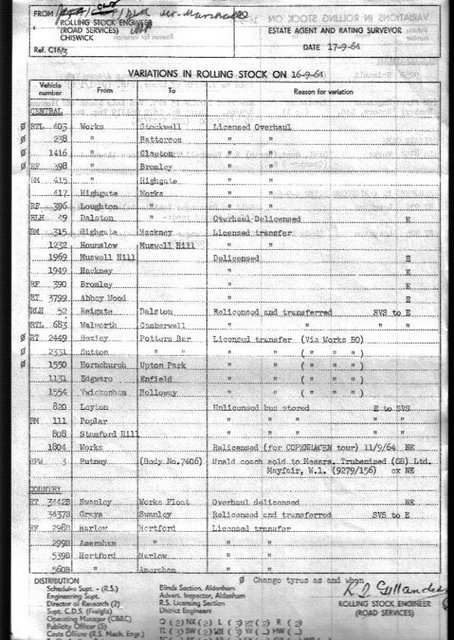 FROM
ROLLING STOCK ENGINEER
(ROAD SERVICES)
CHISWICK
Ref. C16/
Mr. Marshall
ESTATE AGENT AND RATING SURVEYOR
DATE 17-9-64
VARIATIONS IN ROLLING STOCK ON 16-9-64
Vehicle number From To Reason for variation
CENTRAL
Ø RTL 403 Works Stockwell Licensed Overhaul
Ø 238 " Battersea " "
Ø 1416 " Clapton " "
Ø RF 398 " Bromley " "
RM 415 " Highgate " "
417 Highgate Works " "
RF 396 Loughton " " "
RLH 49 Dalston " Overhaul Delicensed E
RM 315 Highgate Hackney Licensed transfer
1232 Hounslow Muswell Hill " "
1969 Muswell Hill Delicensed E
1949 Hackney " E
RF 390 Bromley " E
RT 3799 Abbey Wood " E
RLH 52 Reigate Dalston Relicensed and transferred SVS to E
RTL 683 Walworth Camberwell " " " " "
Ø RT 2449 Bexley Potters Bar Licensed transfer (Via Works BO)
Ø 2331 Sutton " " " ( " " " )
Ø 1550 Hornchurch Upton Park " " ( " " " )
1131 Edgware Enfield " " ( " " " )
1554 Twickenham Holloway " " ( " " " )
820 Leyton Unlicensed bus stored E to SVS
RM 111 Poplar " " " "
808 Stamford Hill " " " "
1804 Works Relicensed (for COPENHAGEN tour) 11/9/64 NE
RFW 3 Putney (Body No.7406) Unald coach sold to Messrs. Trubenised (GB) Ltd.
Mayfair, W.1. (9279/156) ex NE
COUNTRY
RT 3442B Swanley Works Float Overhaul delicensed NE
3437B Grays Swanley Relicensed and transferred SVS to E
RF 298B Harlow Hertford Licensed transfer
299B Amersham " " "
539B Hertford Harlow " "
560B " Amersham " "
Ø Change tyres as and when
DISTRIBUTION
Schedules Supt. - (R.S.)
Engineering Supt.
Director of Research (2)
Supt. C.D.S. (Freight)
Operating Manager (CB&C)
Publicity Officer (2)
Costs Officer (R.S. Mech. Engr.)
Blinds Section, Aldenham
Advert. Inspector, Aldenham
R.S. Licensing Section
District Engineers
ROLLING STOCK ENGINEER
(ROAD SERVICES)